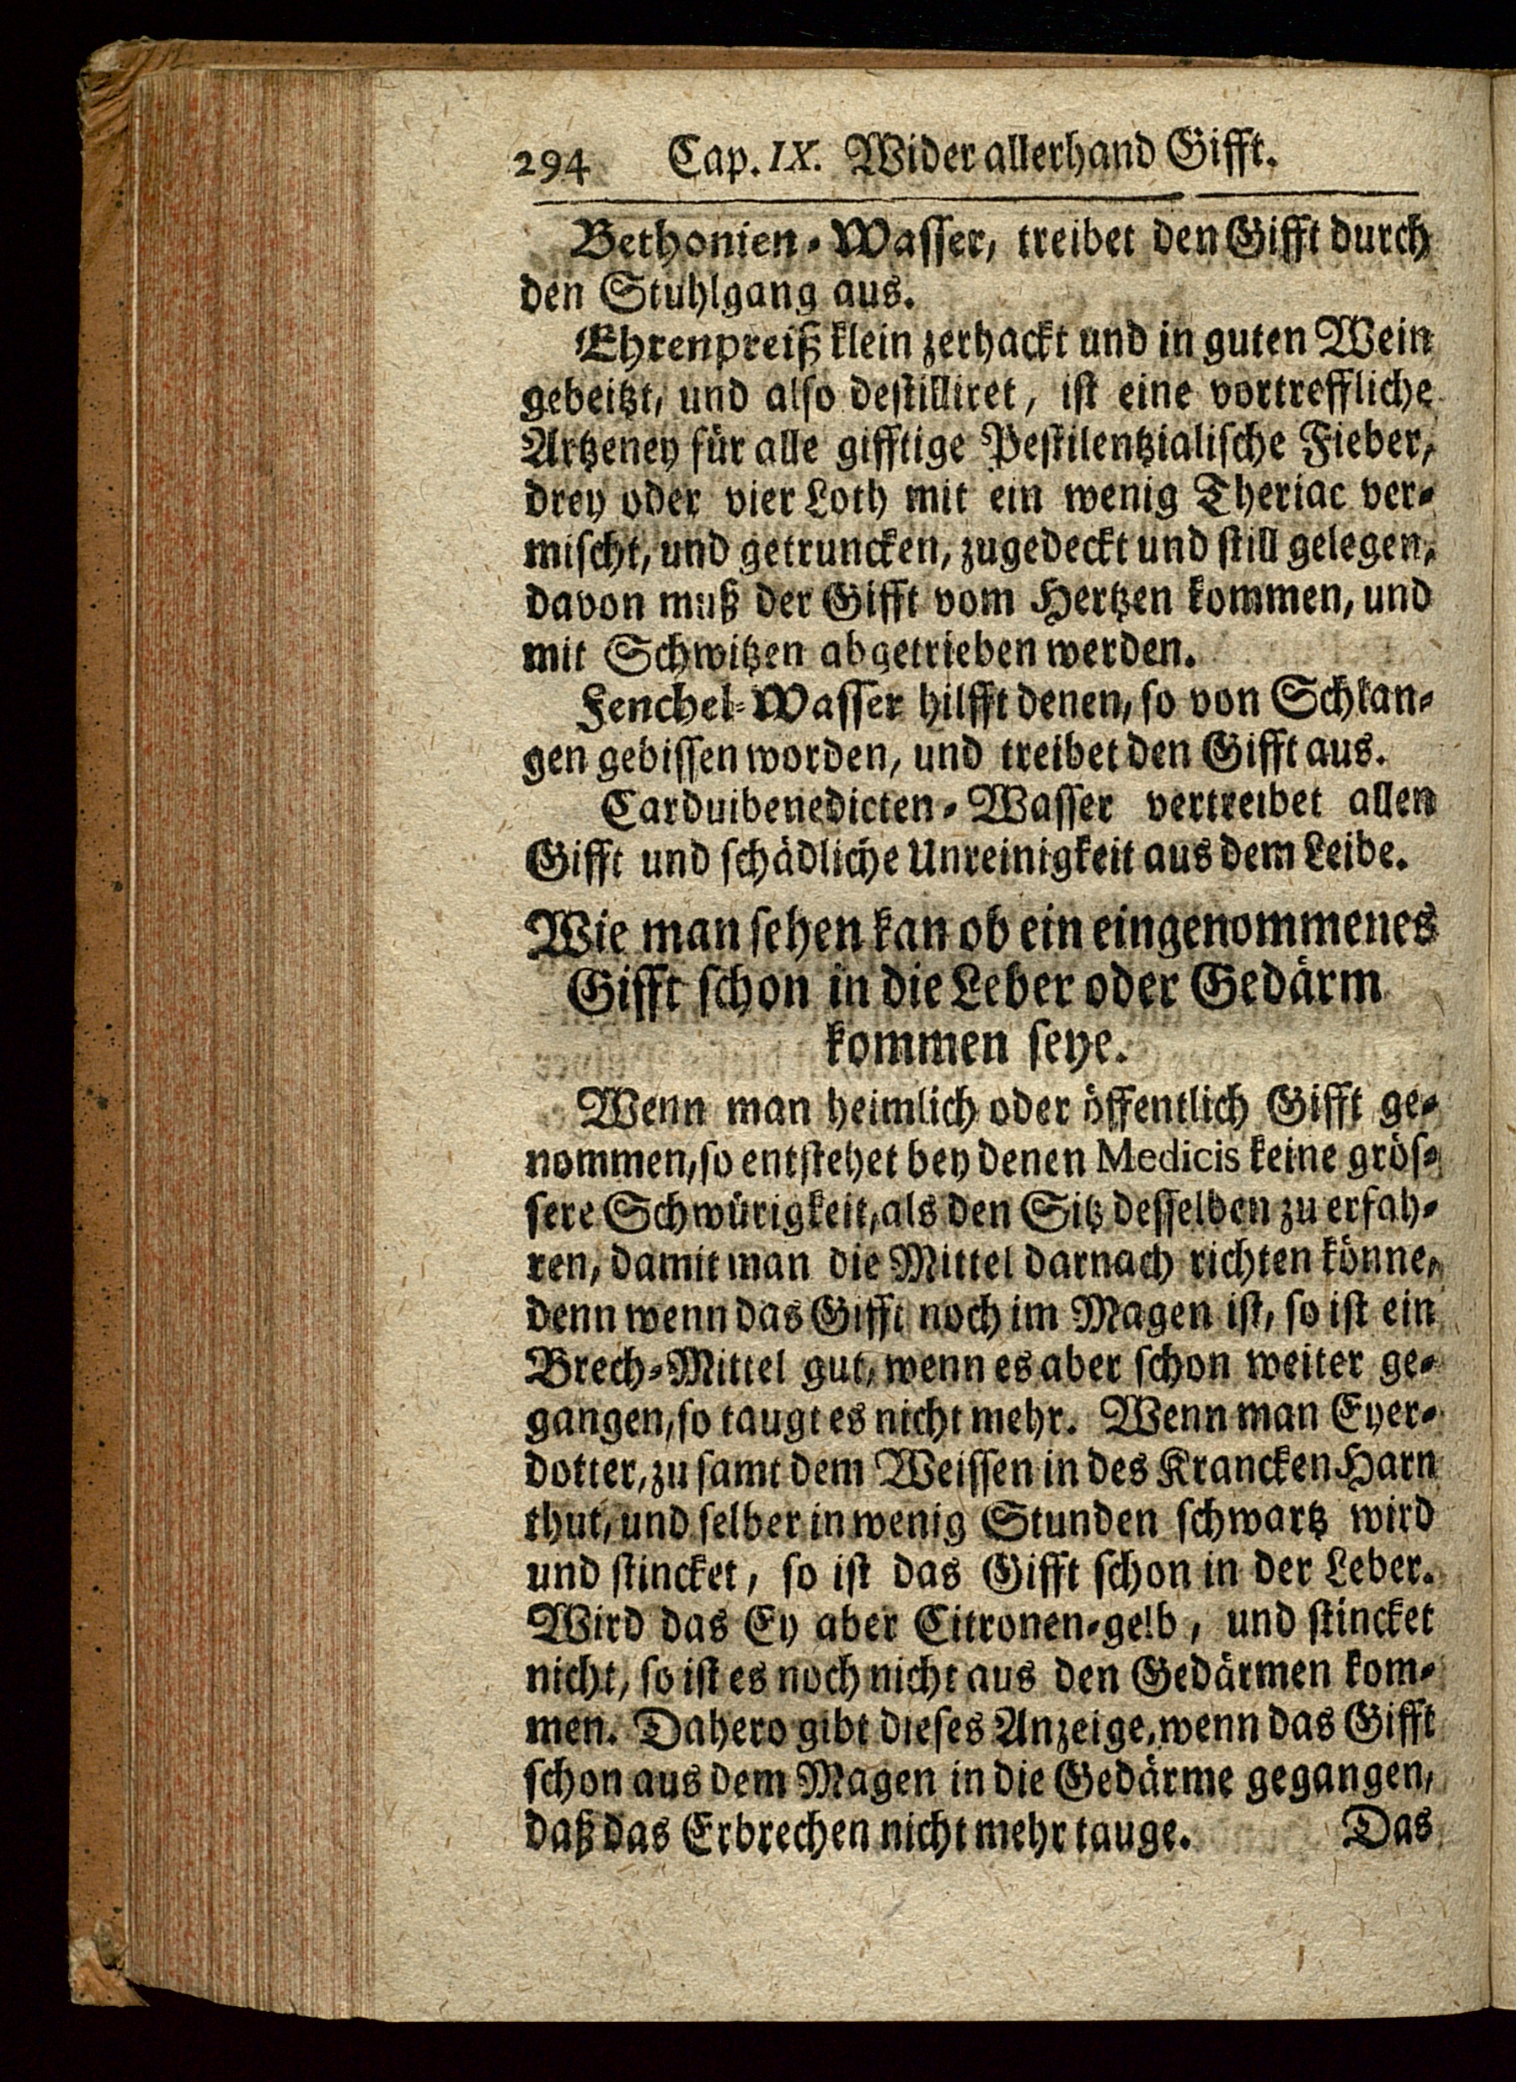 294 Cap. IX. Wider allerhand Gifft.
Bethonien-Wasser, treibet den Gifft durch
den Stuhlgang aus.
Ehrenpreiß klein zerhackt und in guten Wein
gebeitzt, und also destilliret, ist eine vortreffliche
Artzeney für alle gifftige Pestilentzialische Fieber,
drey oder vier Loth mit ein wenig Theriac ver-
mischt, und getruncken, zugedeckt und still gelegen,
davon muß der Gifft vom Hertzen kommen, und
mit Schwitzen abgetrieben werden.
Fenchel-Wasser hilfft denen, so von Schlan-
gen gebissen worden, und treibet den Gifft aus.
Carduibenedicten-Wasser vertreibet allen
Gifft und schädliche Unreinigkeit aus dem Leibe.
Wie man sehen kan ob ein eingenommenes
Gifft schon in die Leber oder Gedärm
kommen seye.
Wenn man heimlich oder öffentlich Gifft ge-
nommen, so entstehet bey denen Medicis keine grös-
sere Schwürigkeit, als den Sitz desselben zu erfah-
ren, damit man die Mittel darnach richten könne,
denn wenn das Gifft noch im Magen ist, so ist ein
Brech-Mittel gut, wenn es aber schon weiter ge-
gangen, so taugt es nicht mehr. Wenn man Eyer-
dotter, zu samt dem Weissen in des Krancken Harn
thut, und selber in wenig Stunden schwartz wird
und stincket, so ist das Gifft schon in der Leber.
Wird das Ey aber Citronen-gelb, und stincket
nicht, so ist es noch nicht aus den Gedärmen kom-
men. Dahero gibt dieses Anzeige, wenn das Gifft
schon aus dem Magen in die Gedärme gegangen,
daß das Erbrechen nicht mehr tauge. Das